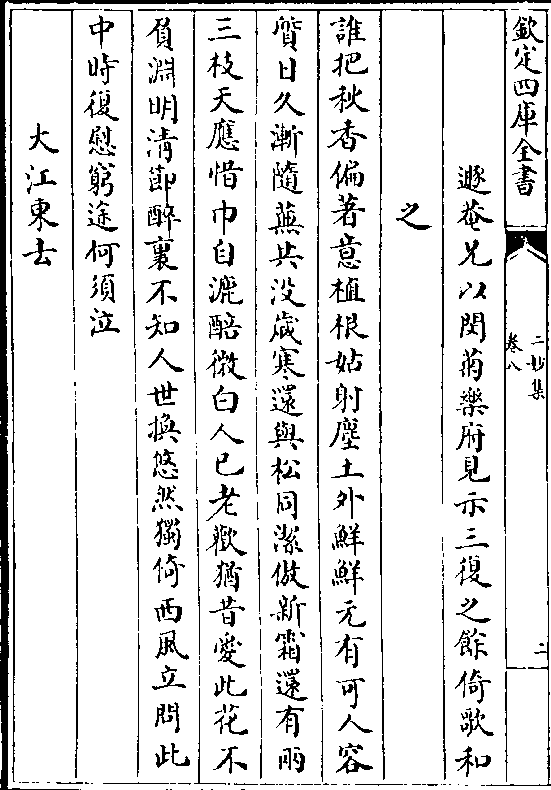 欽定四庫全書
二妙集
卷八
二
遯菴兄以閔菊樂府見示三復之餘倚歌和
之
誰把秋香偏著意植根姑射塵土外鮮鮮元有可人容
質日久漸隨蕪共没歲寒還與松同潔傲新霜還有兩
三枝天應惜巾自漉醅微白人已老歡猶昔愛此花不
負淵明清節醉裏不知人世換悠然獨倚西風立問此
中時復慰窮途何須泣
大江東去